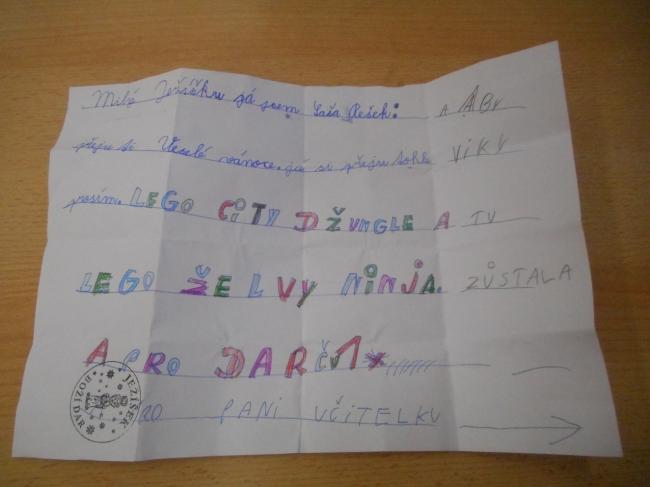 Milé Ježíšku já jsem Saša Rešek: A ABY
přeju ti Veselé vánoce. já si přeju tohle VIKY
prosím. LEGO CiTY DŽUNGLE A TU
LEGO ŽELVY NiNJA. ZŮSTALA
A PRO DAREČ
PRO PANI UČITELKU
JEŽÍŠEK
BOŽÍ DAR